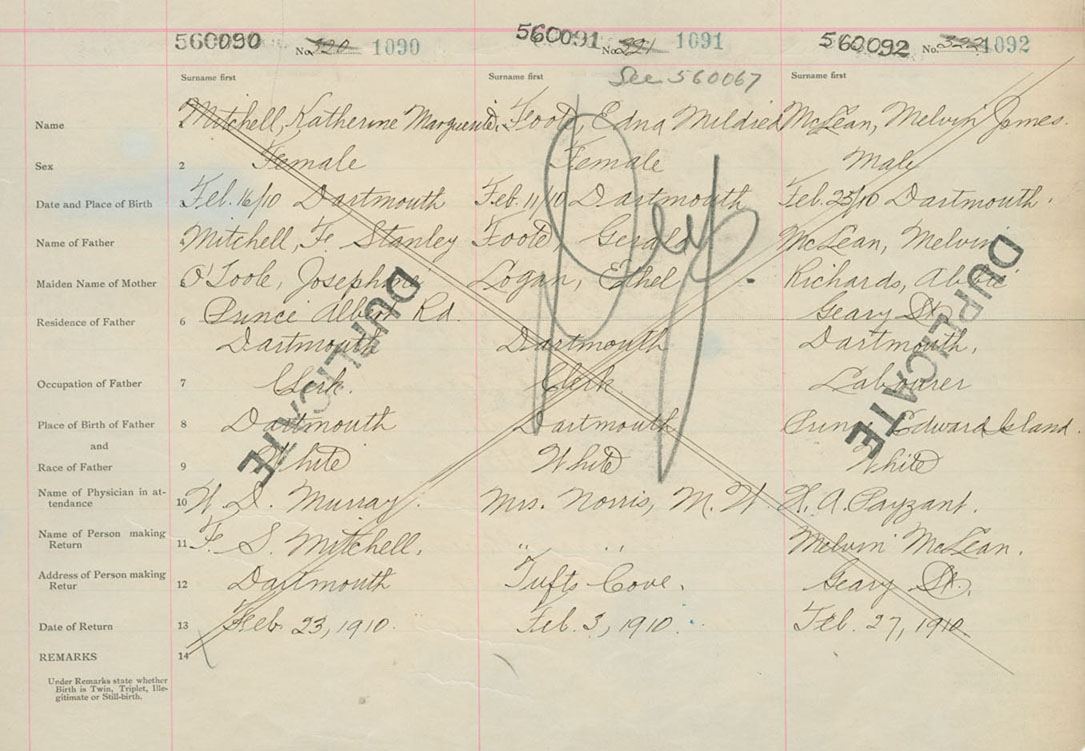 560090 No. 320 1090
560091 No. 321 1091
560092 No. 322 1092
Surname first Surname first Surname first
See 560067
Name 1 Mitchell, Katherine Marguerite Foote, Edna Mildred McLean, Melvin James.
Sex 2 Female Female Male
Date and Place of Birth 3 Feb. 16/10 Dartmouth Feb. 11/10 Dartmouth Feb. 25/10 Dartmouth.
Name of Father 4 Mitchell, F. Stanley Foote, Gerald McLean, Melvin
Maiden Name of Mother 5 O'Toole, Josephine Logan, Ethel Richards,
Residence of Father 6 Prince Albert Rd. Geary St.
Dartmouth Dartmouth Dartmouth.
Occupation of Father 7 Clerk. Clerk Labourer
Place of Birth of Father 8 Dartmouth Dartmouth Prince Edward Island.
and
Race of Father 9 White White White
Name of Physician in at-
tendance 10 W. D. Murray. Mrs. Norris, M. W. H. A. Payzant.
Name of Person making
Return 11 F. S. Mitchell. " " Melvin McLean.
Address of Person making
Retur 12 Dartmouth Tufts Cove. Geary St.
Date of Return 13 Feb. 23, 1910. Feb. 3, 1910. Feb. 27, 1910
REMARKS 14
Under Remarks state whether
Birth is Twin, Triplet, Ille-
gitimate or Still-birth.
DUPLICATE
Dup.
DUPLICATE